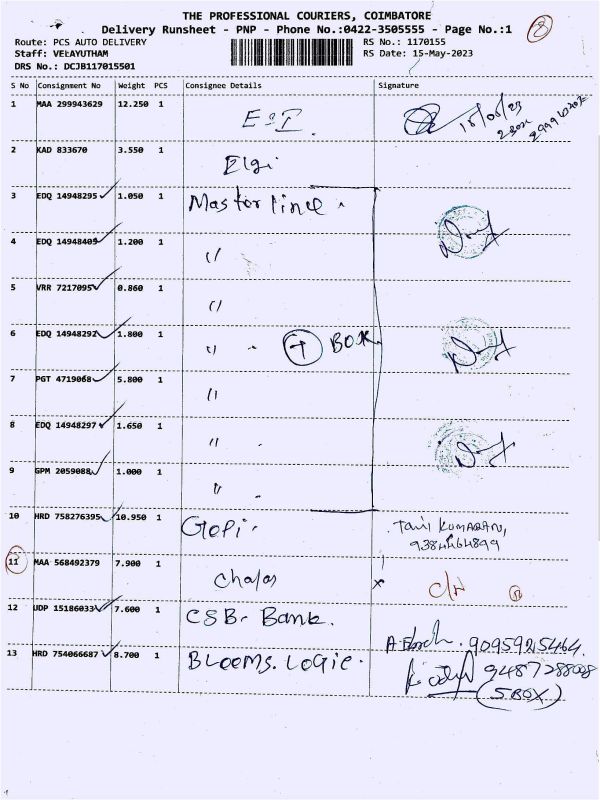 THE PROFESSIONAL COURIERS, COIMBATORE
8
Delivery Runsheet - PNP - Phone No.:0422-3505555 - Page No.:1
Route: PCS AUTO DELIVERY RS No.: 1170155
Staff: VELAYUTHAM RS Date: 15-May-2023
DRS No.: DCJB117015501
S No Consignment No Weight PCS Consignee Details Signature
1 MAA 299943629 12.250 1 E&I 15/05/23
2 KAD 833670 3.550 1 Elgi
3 EDQ 14948295 1.050 1 Master linee
4 EDQ 14948405 1.200 1 〃
5 VRR 7217095 0.860 1 〃
6 EDQ 14948292 1.800 1 〃 7 BOX
7 PGT 4719068 5.800 1 〃
8 EDQ 14948297 1.650 1 〃
9 GPM 2059088 1.000 1 〃
10 HRD 758276395 10.950 1 Gopi. KUMARAN,
9384464899
11 MAA 568492379 7.900 1 x
12 UDP 15186033 7.600 1 CSB. Bank.
9095925464.
13 HRD 754066687 8.700 1 BLOOMS. LOGIE. 9487728808
(5 BOX)